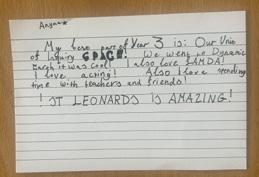 My best part of Year 3 is: Our Unit
of Inquiry SPACE! We went to Dynamic
Earth it was cool! I also love LAMDA!
I love acting! Also I love spending
time with teachers and friends!
! ST LEONARDS IS AMAZING!